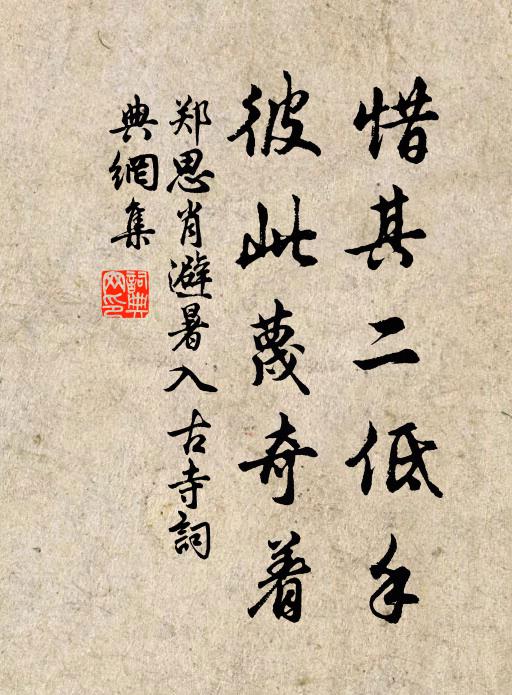 惜其二低手
彼此蔑奇着
郑思肖避暑入古寺詞
典網集
詞典網印